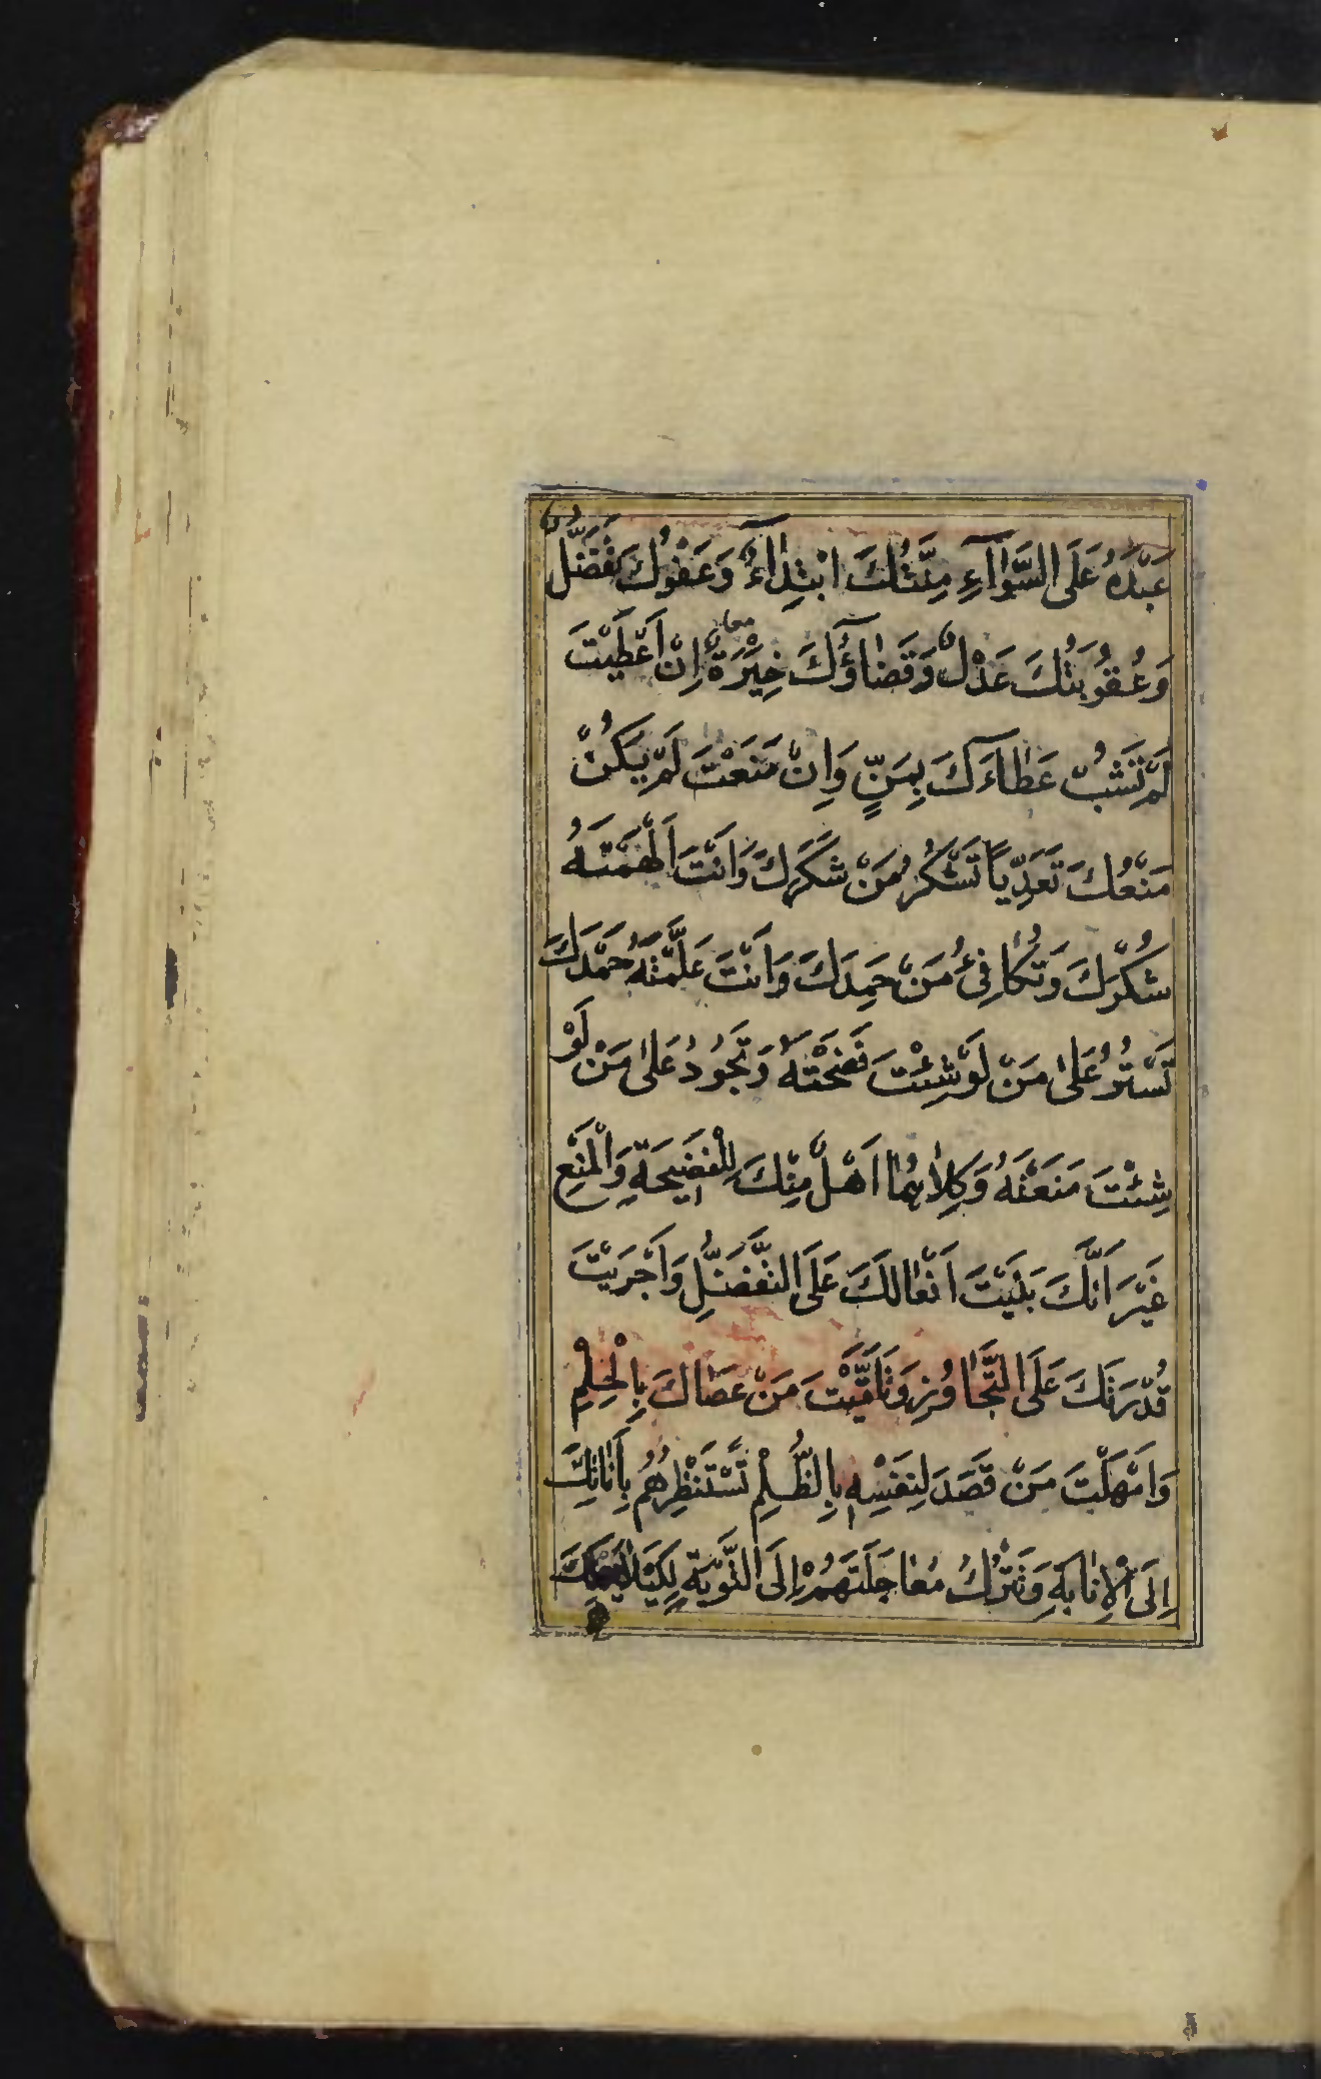 عَبْدَهُ عَلَى السَّوَاۤءِ مِنَّتُكَ ابْتِدَاۤءٌ وَعَفْوُكَ تَفَضُّلٌ
وَعُقُوبَتُكَ عَدْلٌ وَقَضَاؤُكَ خِيَرَةٌ معا اِنْ اَعْطَيْتَ
لَمْ تَشُبْ عَطَاءَكَ بِمَنٍّ وَاِنْ مَنَعْتَ لَمْ يَكُنْ
مَنْعُكَ تَعَدِّيًا تَشْكُرُ مَنْ شَكَرَكَ وَاَنْتَ اَلْهَمْتَهُ
شُكْرَكَ وَتُكَافِئُ مَنْ حَمِدَكَ وَاَنْتَ عَلَّمْتَهُ حَمْدَكَ
تَسْتُرُ عَلَى مَنْ لَوْ شِئْتَ فَضَحْتَهُ وَتَجُودُ عَلَى مَنْ لَوْ
شِئْتَ مَنَعْتَهُ وَكِلَاهُمَا اَهْلٌ مِنْكَ لِلْفَضِيحَةِ وَالْمَنْعِ
غَيْرَ اَنَّكَ بَنَيْتَ اَفْعَالَكَ عَلَى التَّفَضُّلِ وَاَجْرَيْتَ
قُدْرَتَكَ عَلَى التَّجَاوُزِ وَتَلَقَّيْتَ مَنْ عَصَاكَ بِالْحِلْمِ
وَاَمْهَلْتَ مَنْ قَصَدَ لِنَفْسِهِ بِالظُّلْمِ تَسْتَنْظِرُهُمْ بِاَنَاتِكَ
اِلَى الْاِنَابَةِ وَتَتْرُكُ مُعَاجَلَتَهُمْ اِلَى التَّوْبَةِ لِكَيْلَا